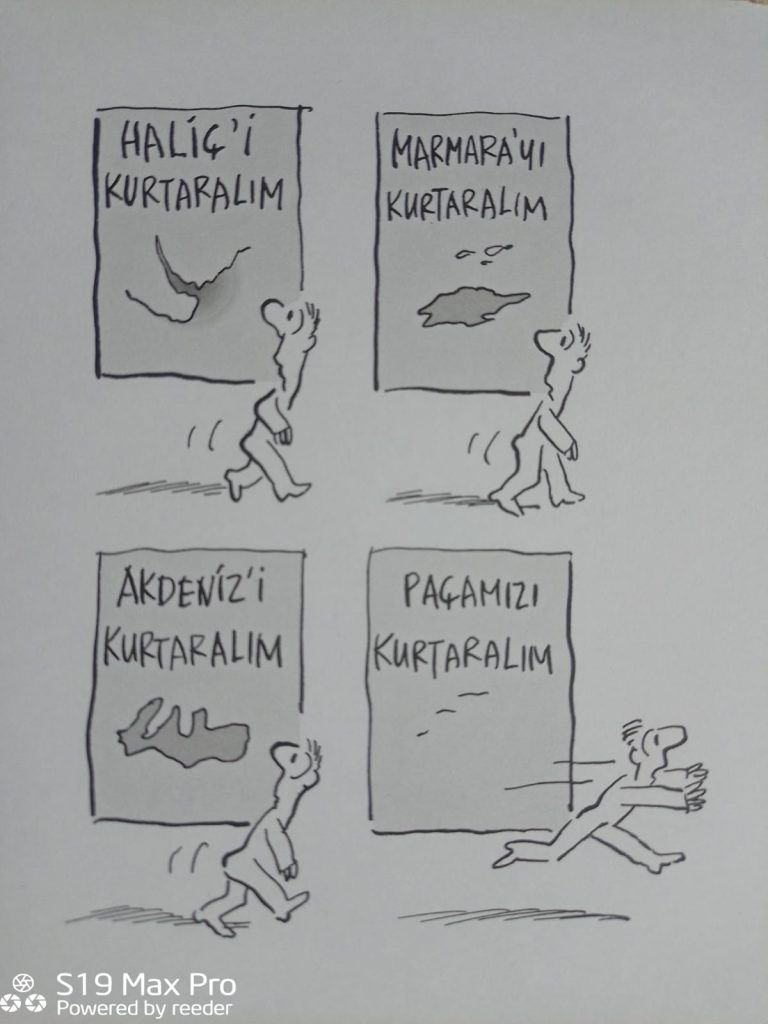 HALİÇ'İ
KURTARALIM
MARMARA'YI
KURTARALIM
AKDENİZ'İ
KURTARALIM
PAÇAMIZI
KURTARALIM
S19 Max Pro
Powered by reeder